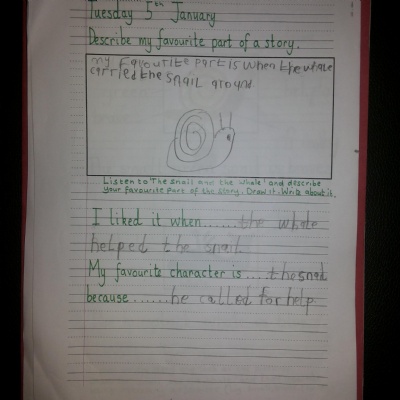 Tuesday 5th January
Describe my favourite part of a story.
my Favourite part is when the whale
carried the snail around
Listen to 'The snail and the whale' and describe
your favourite part of the story. Draw it. Write about it.
I liked it when.......the whale
helped the snail
My favourite character is ....the snail
because .......he called for help